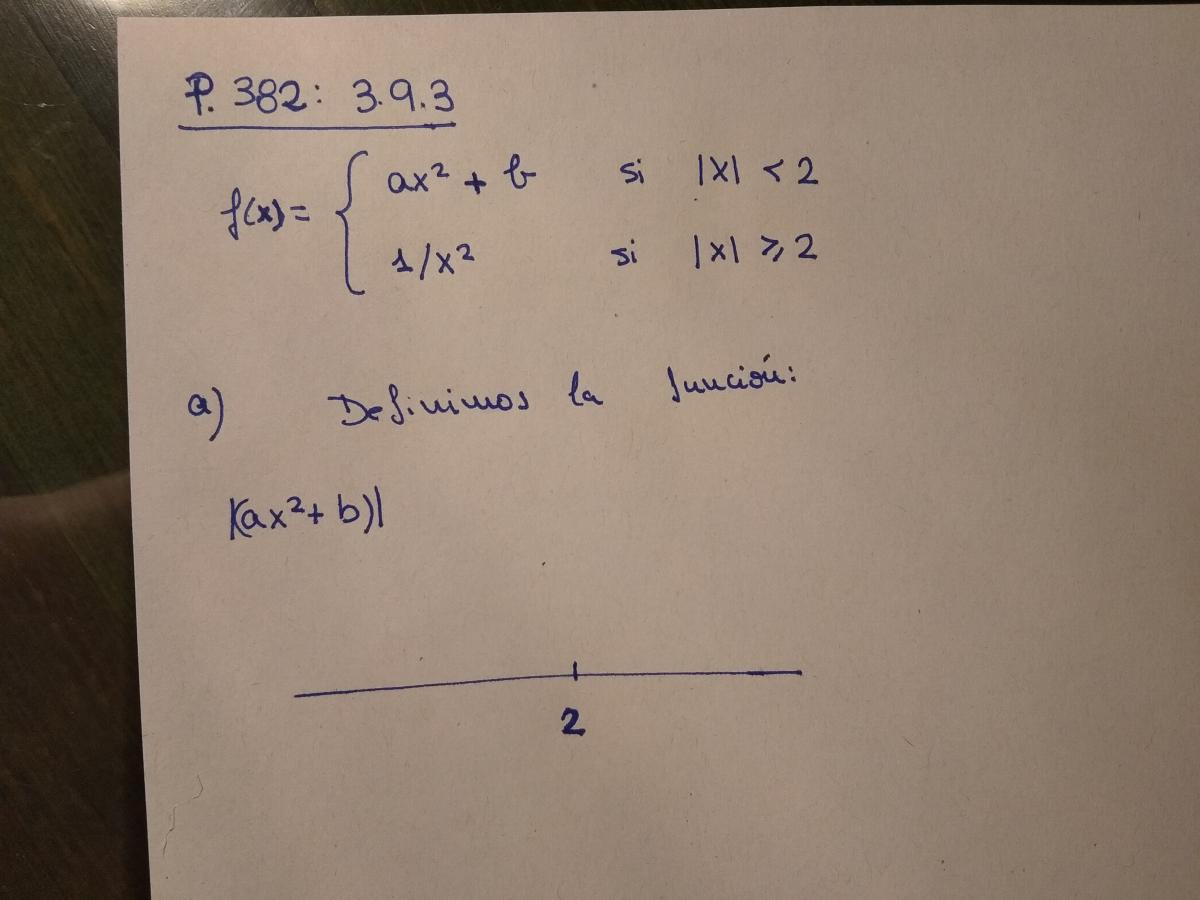 P. 382: 3.9.3
f(x) = { ax² + b si |x| < 2
1/x² si |x| ⩾ 2
a) Definimos la función:
|(ax² + b)|
2